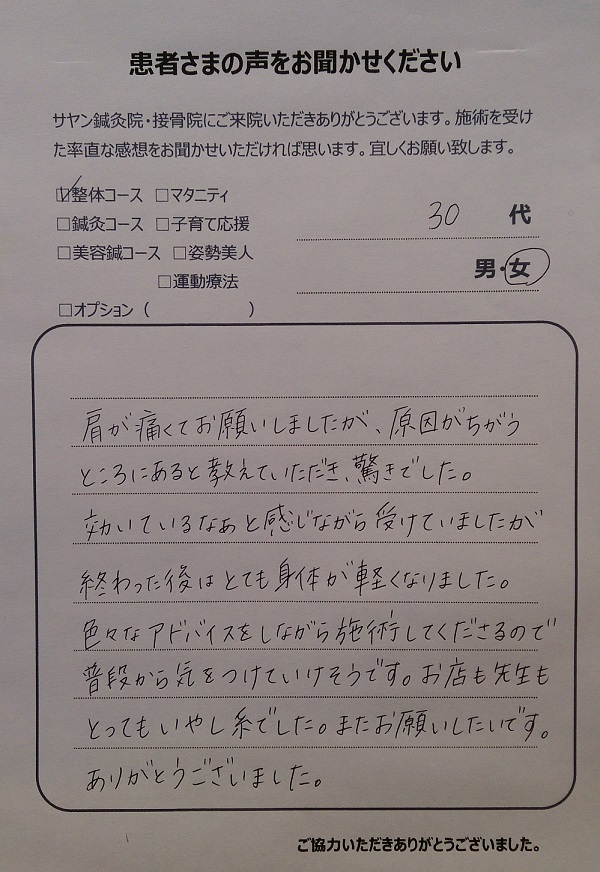 患者さまの声をお聞かせください
サヤン鍼灸院・接骨院にご来院いただきありがとうございます。施術を受け
た率直な感想をお聞かせいただければ思います。宜しくお願い致します。
☑整体コース □マタニティ
□鍼灸コース □子育て応援
30 代
□美容鍼コース □姿勢美人
男・女
□運動療法
□オプション（ ）
肩が痛くてお願いしましたが、原因がちがう
ところにあると教えていただき、驚きでした。
効いているなぁと感じながら受けていましたが
終わった後はとても身体が軽くなりました。
色々なアドバイスをしながら施術してくださるので
普段から気をつけていけそうです。お店も先生も
とってもいやし系でした。またお願いしたいです。
ありがとうございました。
ご協力いただきありがとうございました。